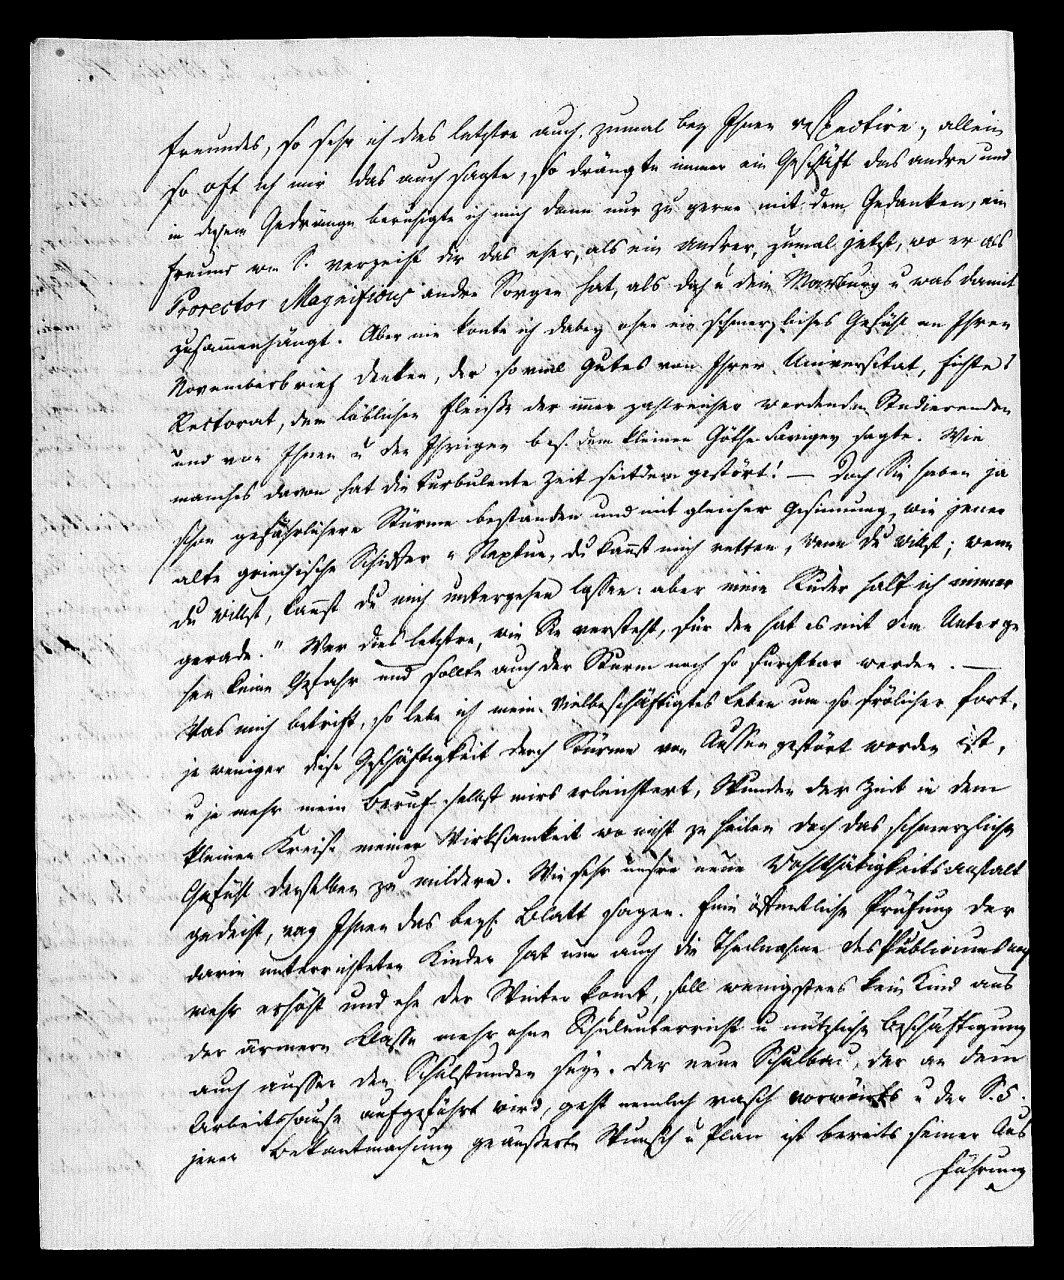 Freundes, so sehr ich das letztre auch, zumal bey Ihnen respectire; allein
so oft ich mir das auch sagte, so drängte immer ein Geschäft das andre und
in diesem Gedränge beruhigte ich mich dann nur zu gerne mit dem Gedanken, ein
Freund wie S. verzeiht dir das eher, als ein Andrer, zumal jetzt, wo er als
Prorector Magnificus andre Sorgen hat, als dich u dein Marburg u was damit
zusammenhängt. Aber nie konte ich dabey ohne ein schmerzliches Gefühl an Ihren
Novemberbrief denken, der so viel Gutes von Ihrer Universitat, Fichte's
Rectorat, dem löblichen Fleiße der immer zahlreicher werdenden Studierenden
und von Ihnen u den Ihrigen bes. dem kleinen Göthe sagte. Wie
manches davon hat die turbulente Zeit seitdem gestört! — Doch Sie haben ja
schon gefährlichere Stürme bestanden und mit gleicher Gesinnung, wie jener
alte griechische Schiffer „ Neptun, du kannst mich retten, wenn du willst; wenn
du willst, kannst du mich untergehen lassen: aber mein Ruder halt ich immer
gerade." Wer dies letztre, wie Sie versteht, für den hat es mit dem Unterge
hen keine Gefahr und sollte auch der Sturm noch so furchtbar werden. —
Was mich betrift, so lebe ich mein vielbeschäftigtes Leben um so frölicher fort,
je weniger diese Geschäftigkeit durch Stürme von Aussen gestört worden ist,
u je mehr mein Beruf selbst mirs erleichtert, Wunden der Zeit in dem
kleinen Kreise meiner Wirksamkeit wo nicht zu heilen doch das schmerzliche
Gefühl derselben zu mildern. Wie sehr unsre neue Wohlthätigkeitsanstalt
gedeiht, mag Ihnen das beyl. Blatt sagen. Eine öffentliche Prüfung der
darin unterrichteten Kinder hat nun auch die Theilnahme des Publicums noch
mehr erhöht und ehe der Winter komt, soll wenigstens kein Kind aus
der ärmern Classe mehr ohne Schulunterricht u nützliche Beschäftigung
auch ausser den Schulstunden seyn. Der neue Schulbau, der an dem
Arbeitshause aufgeführt wird, geht nemlich rasch vorwärts u der S. 5.
jener Bekantmachung geäußerte Wunsch u Plan ist bereits seiner Aus
führung